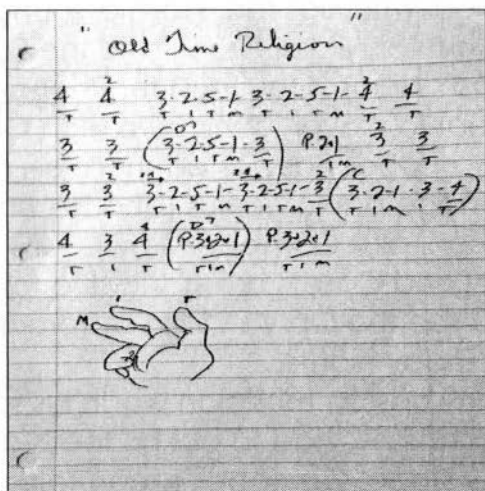 "Old Time Religion"
4 4 3-2-5-1-3-2-5-1-4 4
T T T I T M T I T M T T
3 3 (3-2-5-1-3) P.2+1 3 3
T T T I T M T I M T T
3 3 3-2-5-1-3-2-5-1-3 (3-2-1-3-4)
T T T I T M T I T M T T I M I T
4 3 4 (P.3+2+1) P.3+2+1
T I T T I M T I M
M I T